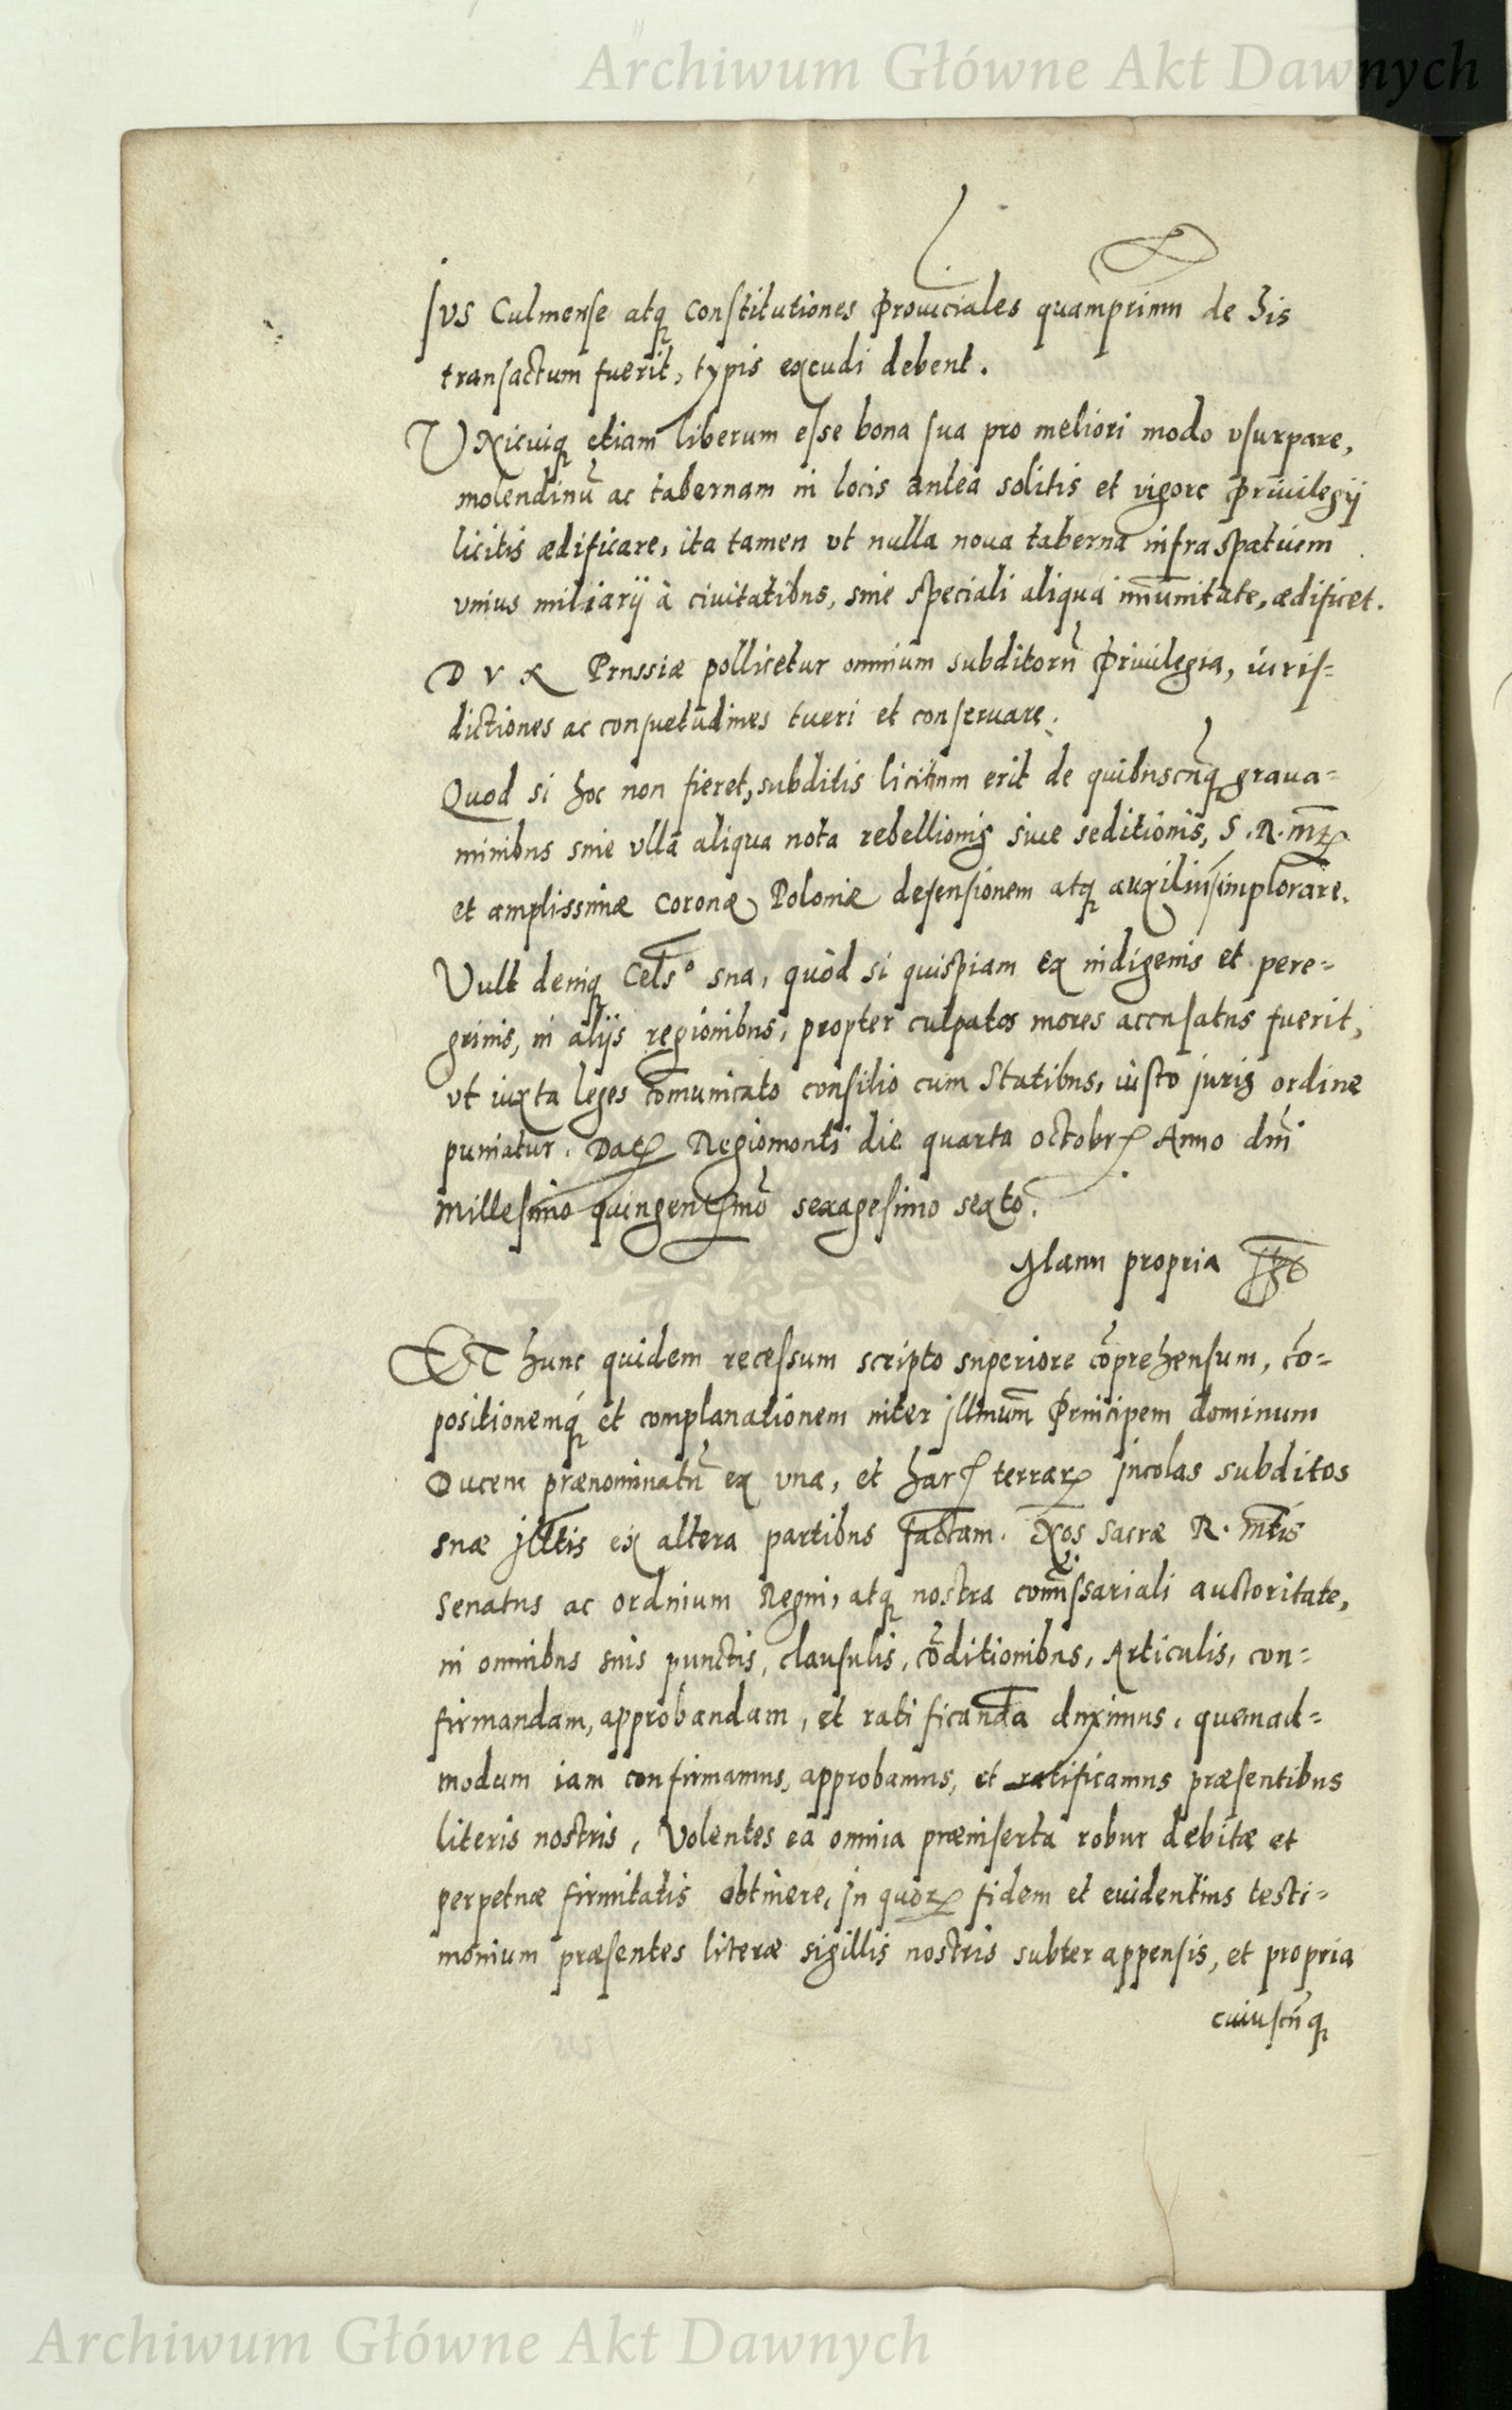 Archiwum Główne Akt Dawnych
Ius Culmense atq Constitutiones Prouīciales quamprimū de his
transactum fuerit, typis excudi debent.
Vnicuiq etiam liberum esse bona sua pro meliori modo vsurpare,
molendinū ac tabernam in locis antea solitis et vigore Priuilegij
licitis ædificare, ita tamen vt nulla noua taberna infra spatium
vnius miliarij à ciuitatibus, sine speciali aliqua im̄unitate, ædificet.
DVX Prussiæ pollicetur omnium subditorū Priuilegia, iuris-
dictiones ac consuetudines tueri et conseruare.
Quod si hoc non fieret, subditis licitum erit de quibuscūq graua-
minibus sine vlla aliqua nota rebellionis siue seditionis, S. R. mtis
et amplissimæ Coronæ Poloniæ defensionem atq auxiliū implorare.
Vult deniq Cels° sua, quòd si quispiam ex indigenis et pere-
grinis, in alijs regionibus, propter culpatos mores accusatus fuerit,
vt iuxta leges com̄unicato consilio cum Statibus, iusto juris ordine
puniatur. Dat Regiomonti die quarta octobr Anno dnī
millesimo quingentesimo sexagesimo sexto.
Manu propria
ET hunc quidem recessum scripto superiore cōprehensum, cō-
positionemq et complanationem inter Illmum Principem dominum
Ducem prænominatū ex vna, et har terrar Incolas subditos
suæ Illtis ex altera partibus factam. Nos Sacræ R. mtis
Senatus ac ordinium Regni, atq nostra com̄issariali auctoritate,
in omnibus suis punctis, clausulis, cōditionibus, Articulis, con-
firmandam, approbandam, et ratificandā duximus, quemad-
modum iam confirmamus, approbamus, et ratificamus præsentibus
literis nostris, Volentes ea omnia præinserta robur debitæ et
perpetuæ firmitatis obtinere, In quor fidem et euidentius testi-
monium præsentes literæ sigillis nostris subter appensis, et propria
cuiuscūq
Archiwum Główne Akt Dawnych